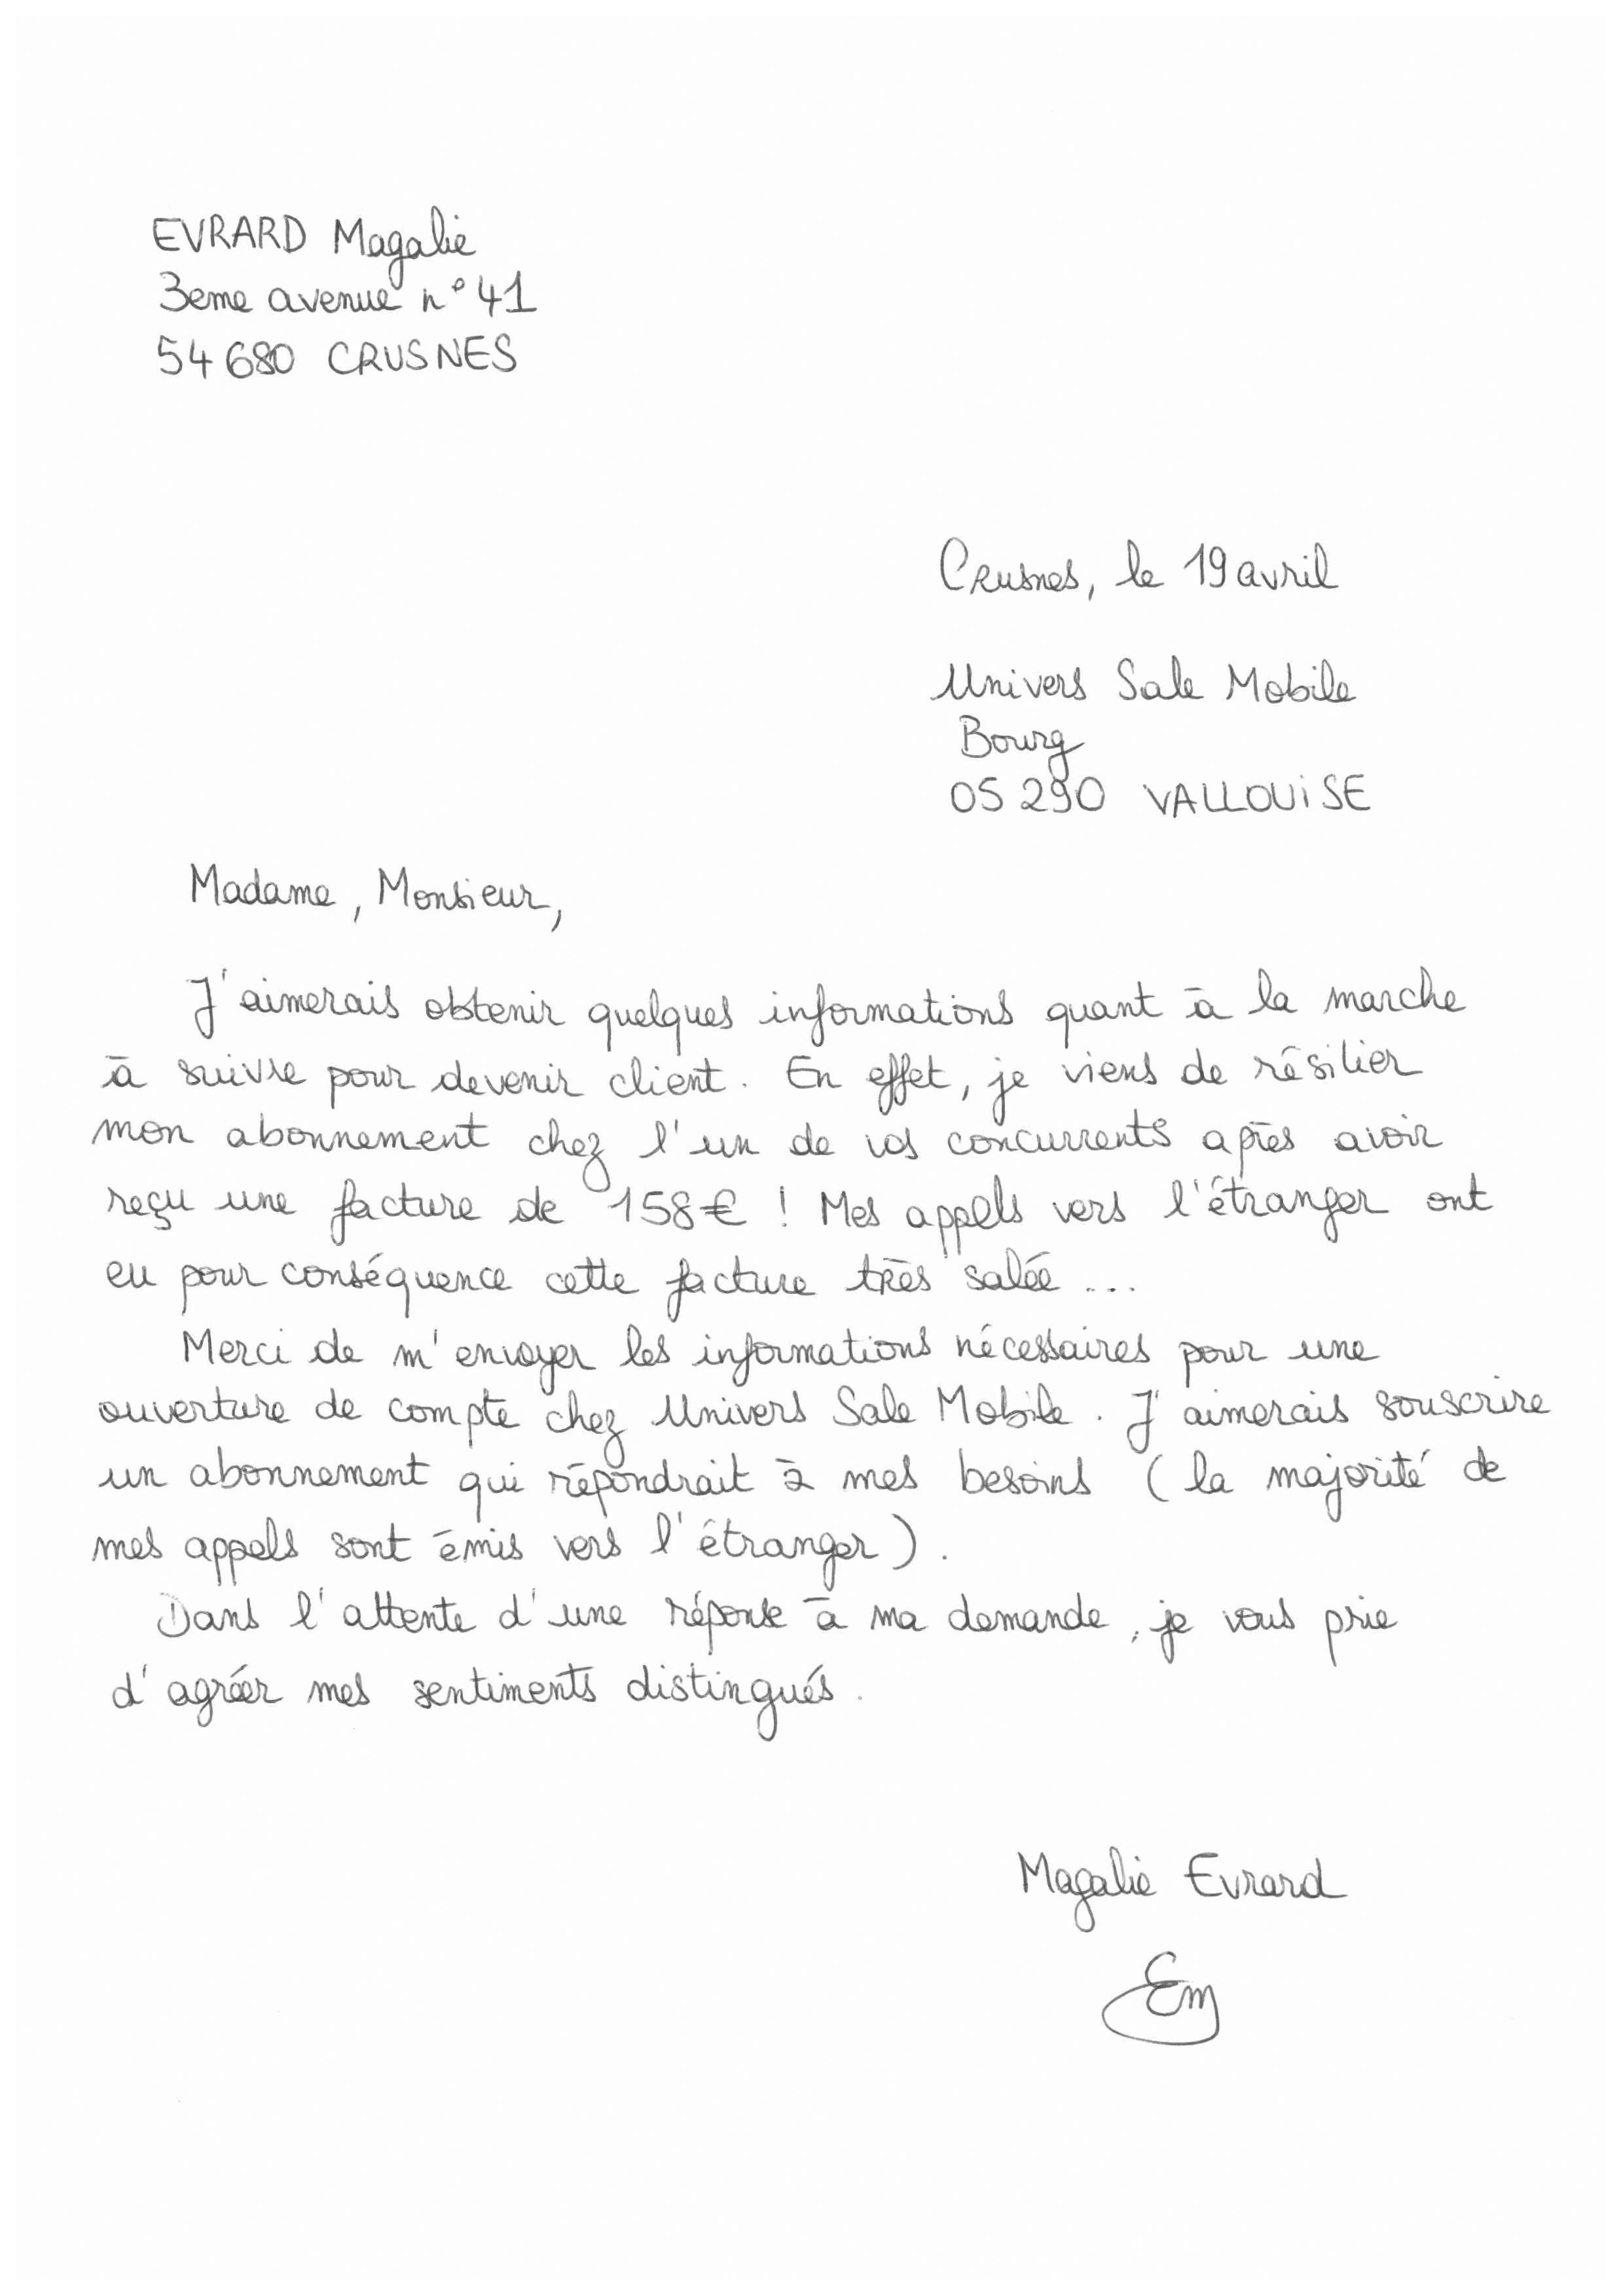 EVRARD Magalie
3eme avenue n° 41
54680 CRUSNES
Crusnes, le 19 avril
Univers Sale Mobile
Bourg
05290 VALLOUISE
Madame, Monsieur,
J'aimerais obtenir quelques informations quant à la marche
à suivre pour devenir client. En effet, je viens de résilier
mon abonnement chez l'un de vos concurrents après avoir
reçu une facture de 158€ ! Mes appels vers l'étranger ont
eu pour conséquence cette facture très salée ...
Merci de m'envoyer les informations nécessaires pour une
ouverture de compte chez Univers Sale Mobile. J'aimerais souscrire
un abonnement qui répondrait à mes besoins (la majorité de
mes appels sont émis vers l'étranger).
Dans l'attente d'une réponse à ma demande, je vous prie
d'agréer mes sentiments distingués.
Magalie Evrard
Em